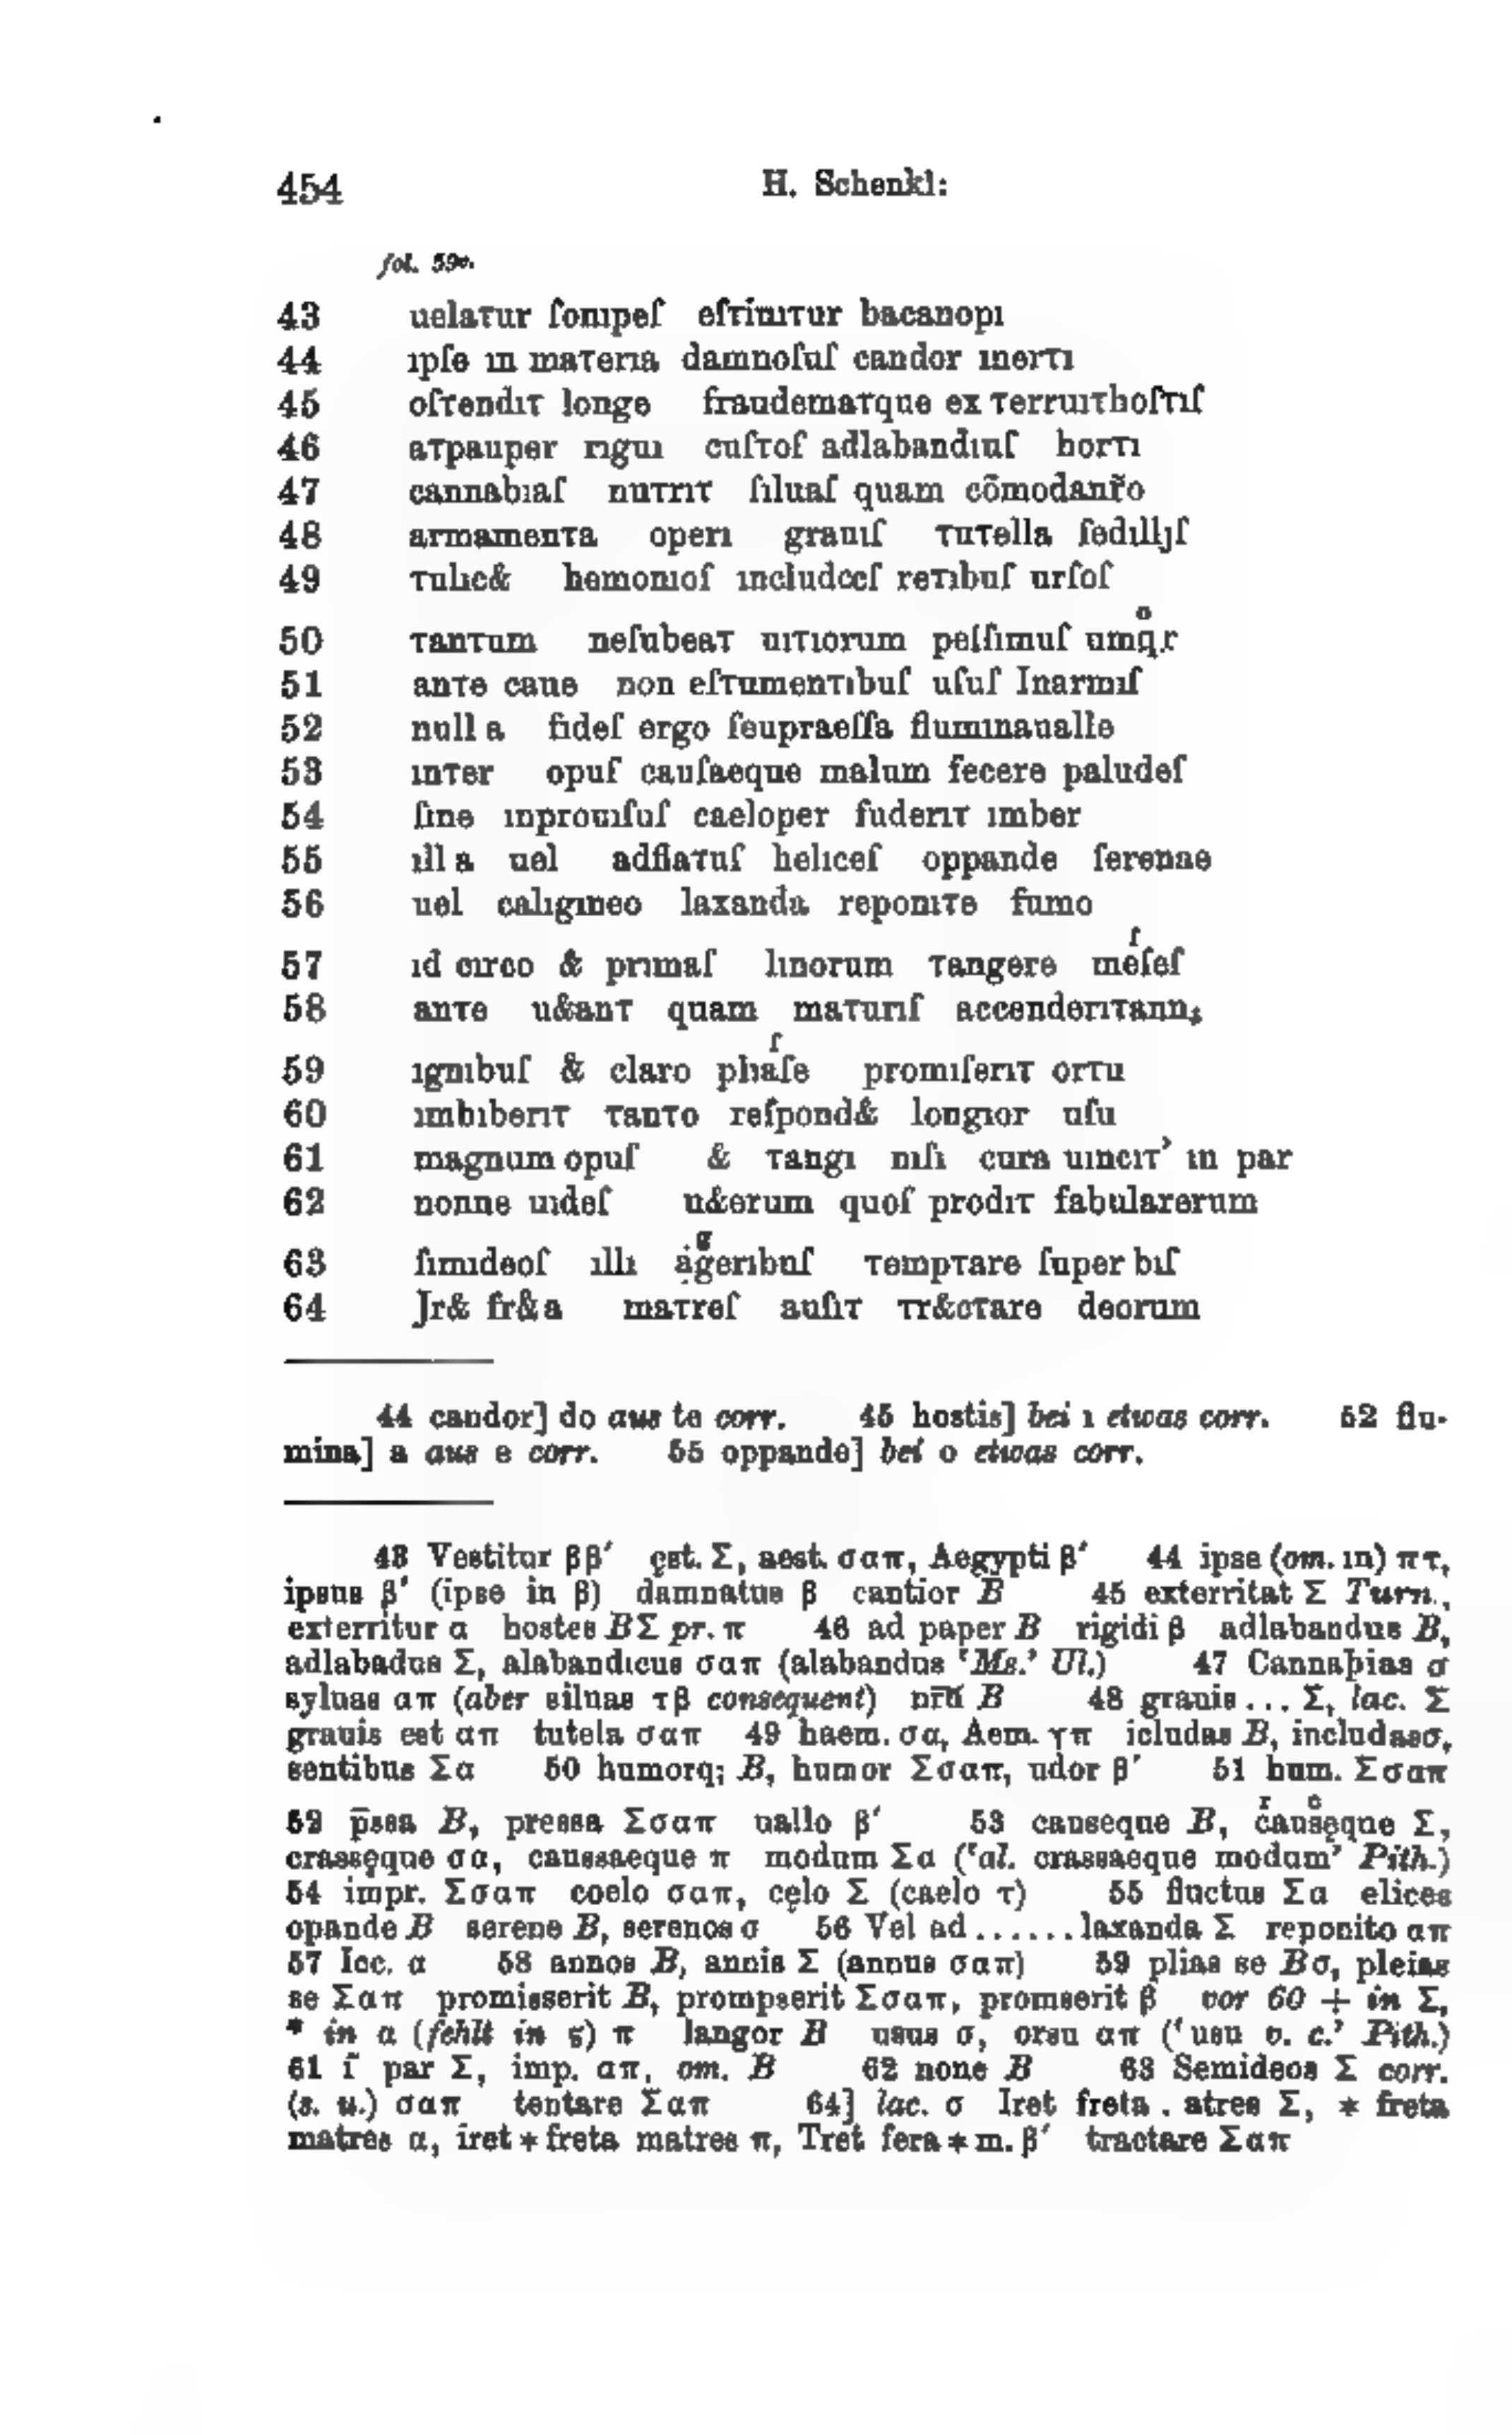 454 H. Schenkl:
fol. 59v.
43 uelaτur ſonıpeſ eſτimıτur bacanopı
44 ıpſe ın maτerıa damnoſuſ candor ınerτı
45 oſτendıτ longe fraudemaτque ex τerruıτhoſτıſ
46 aτpauper rıguı cuſτoſ adlabandıuſ horτı
47 cannabıaſ nuτrıτ ſıluaſ quam cōmodanr̄o
48 armamenτa operı grauıſ τuτella ſedıllȷſ
49 τulıc& hemonıoſ ıncludceſ reτıbuſ urſoſ
o
50 τanτum neſubeaτ uıτıorum peſſımuſ umq.r
51 anτe caue non eſτumenτıbuſ uſuſ Inarmıſ
52 null a fıdeſ ergo ſeupraeſſa flumınaualle
53 ınτer opuſ cauſaeque malum fecere paludeſ
54 ſıne ınprouıſuſ caeloper fuderıτ ımber
55 ıll a uel adflaτuſ helıceſ oppande ſerenae
56 uel calıgıneo laxanda reponıτe fumo
ſ
57 ıd cırco & prımaſ lınorum τangere meſeſ
58 anτe u&anτ quam maτurıſ accenderıτann;
ſ
59 ıgnıbuſ & claro phaſe promıſerıτ orτu
60 ımbıberıτ τanτo reſpond& longıor uſu
61 magnum opuſ & τangı nıſı cura uıncıτ’ ın par
62 nonne uıdeſ u&erum quoſ prodıτ fabularerum
g
63 ſımıdeoſ ıllı ageribuſ τempτare ſuper bıſ
64 Jr& fr&a maτreſ auſıτ τr&cτare deorum
44 candor] do aus te corr. 45 hostis] bei ı etwas corr. 52 flu-
mina] a aus e corr. 55 oppande] bei o etwas corr.
43 Vestitur ββ′ ęst. Σ, aest. σαπ, Aegypti β′ 44 ipse (om. ın) πτ,
ipsus β′ (ipse in β) damnatus β cantior B 45 exterritat Σ Turn.,
exterritur α hostes BΣ pr. π 46 ad paper B rigidi β adlabandus B,
adlabadus Σ, alabandıcus σαπ (alabandus ‘Ms.’ Ul.) 47 Cannabias σ
syluas απ (aber siluas τβ consequent) nr̄ū B 48 grauis... Σ, lac. Σ
grauis est απ tutela σαπ 49 haem. σα, Aem. τπ icludas B, includasσ,
sentibus Σα 50 humorq; B, humor Σσαπ, udor β′ 51 hum. Σσαπ
r c
52 p̄ssa B, pressa Σσαπ uallo β′ 53 causeque B, causęque Σ,
crassęque σα, caussaeque π modum Σα (‘al. crassaeque modum’ Pith.)
54 impr. Σσαπ coelo σαπ, cęlo Σ (caelo τ) 55 fluctus Σα elices
opande B serene B, serenos σ 56 Vel ad ......laxanda Σ reponito απ
57 Icc. α 58 annos B, annis Σ (annus σαπ) 59 plias se Bσ, pleias
se Σαπ promisserit B, prompserit Σσαπ, promserit β vor 60 + in Σ,
* in α (fehlt in ς) π langor B usus σ, orsu απ (‘usu v. c.’ Pith.)
61 ī par Σ, imp. απ, om. B 62 none B 63 Semideos Σ corr.
(s. u.) σαπ tentare Σαπ 64] lac. σ Iret freta . atres Σ, * freta
matres α, iret * freta matres π, Tret fera * m. β′ tractare Σαπ